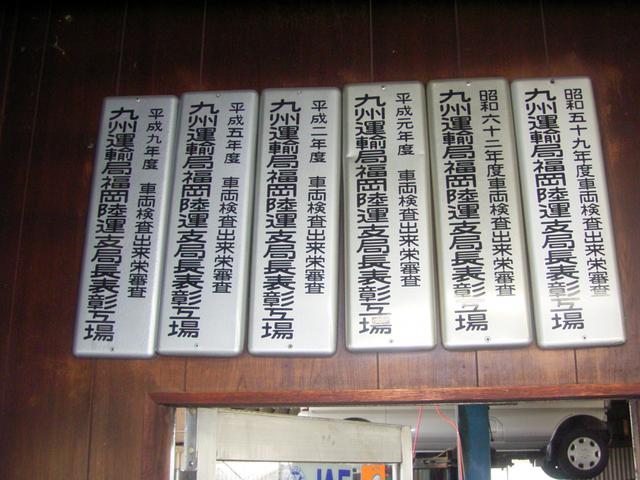 昭和五十九年度車両検査出来栄審査
九州運輸局福岡陸運支局長表彰工場
昭和六十二年度車両検査出来栄審査
九州運輸局福岡陸運支局長表彰工場
平成元年度 車両検査出来栄審査
九州運輸局福岡陸運支局長表彰工場
平成二年度 車両検査出来栄審査
九州運輸局福岡陸運支局長表彰工場
平成五年度 車両検査出来栄審査
九州運輸局福岡陸運支局長表彰工場
平成九年度 車両検査出来栄審査
九州運輸局福岡陸運支局長表彰工場